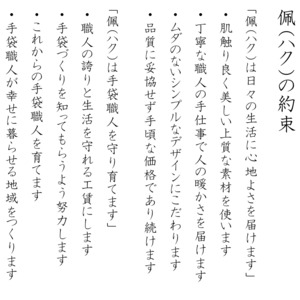 佩(ハク)の約束
「佩(ハク)は日々の生活に心地よさを届けます」
・肌触り良く美しい上質な素材を使います
・丁寧な職人の手仕事で人の暖かさを届けます
・ムダのないシンプルなデザインにこだわります
・品質に妥協せず手頃な価格であり続けます
「佩(ハク)は手袋職人を守り育てます」
・職人の誇りと生活を守れる工賃にします
・手袋づくりを知ってもらうよう努力します
・これからの手袋職人を育てます
・手袋職人が幸せに暮らせる地域をつくります